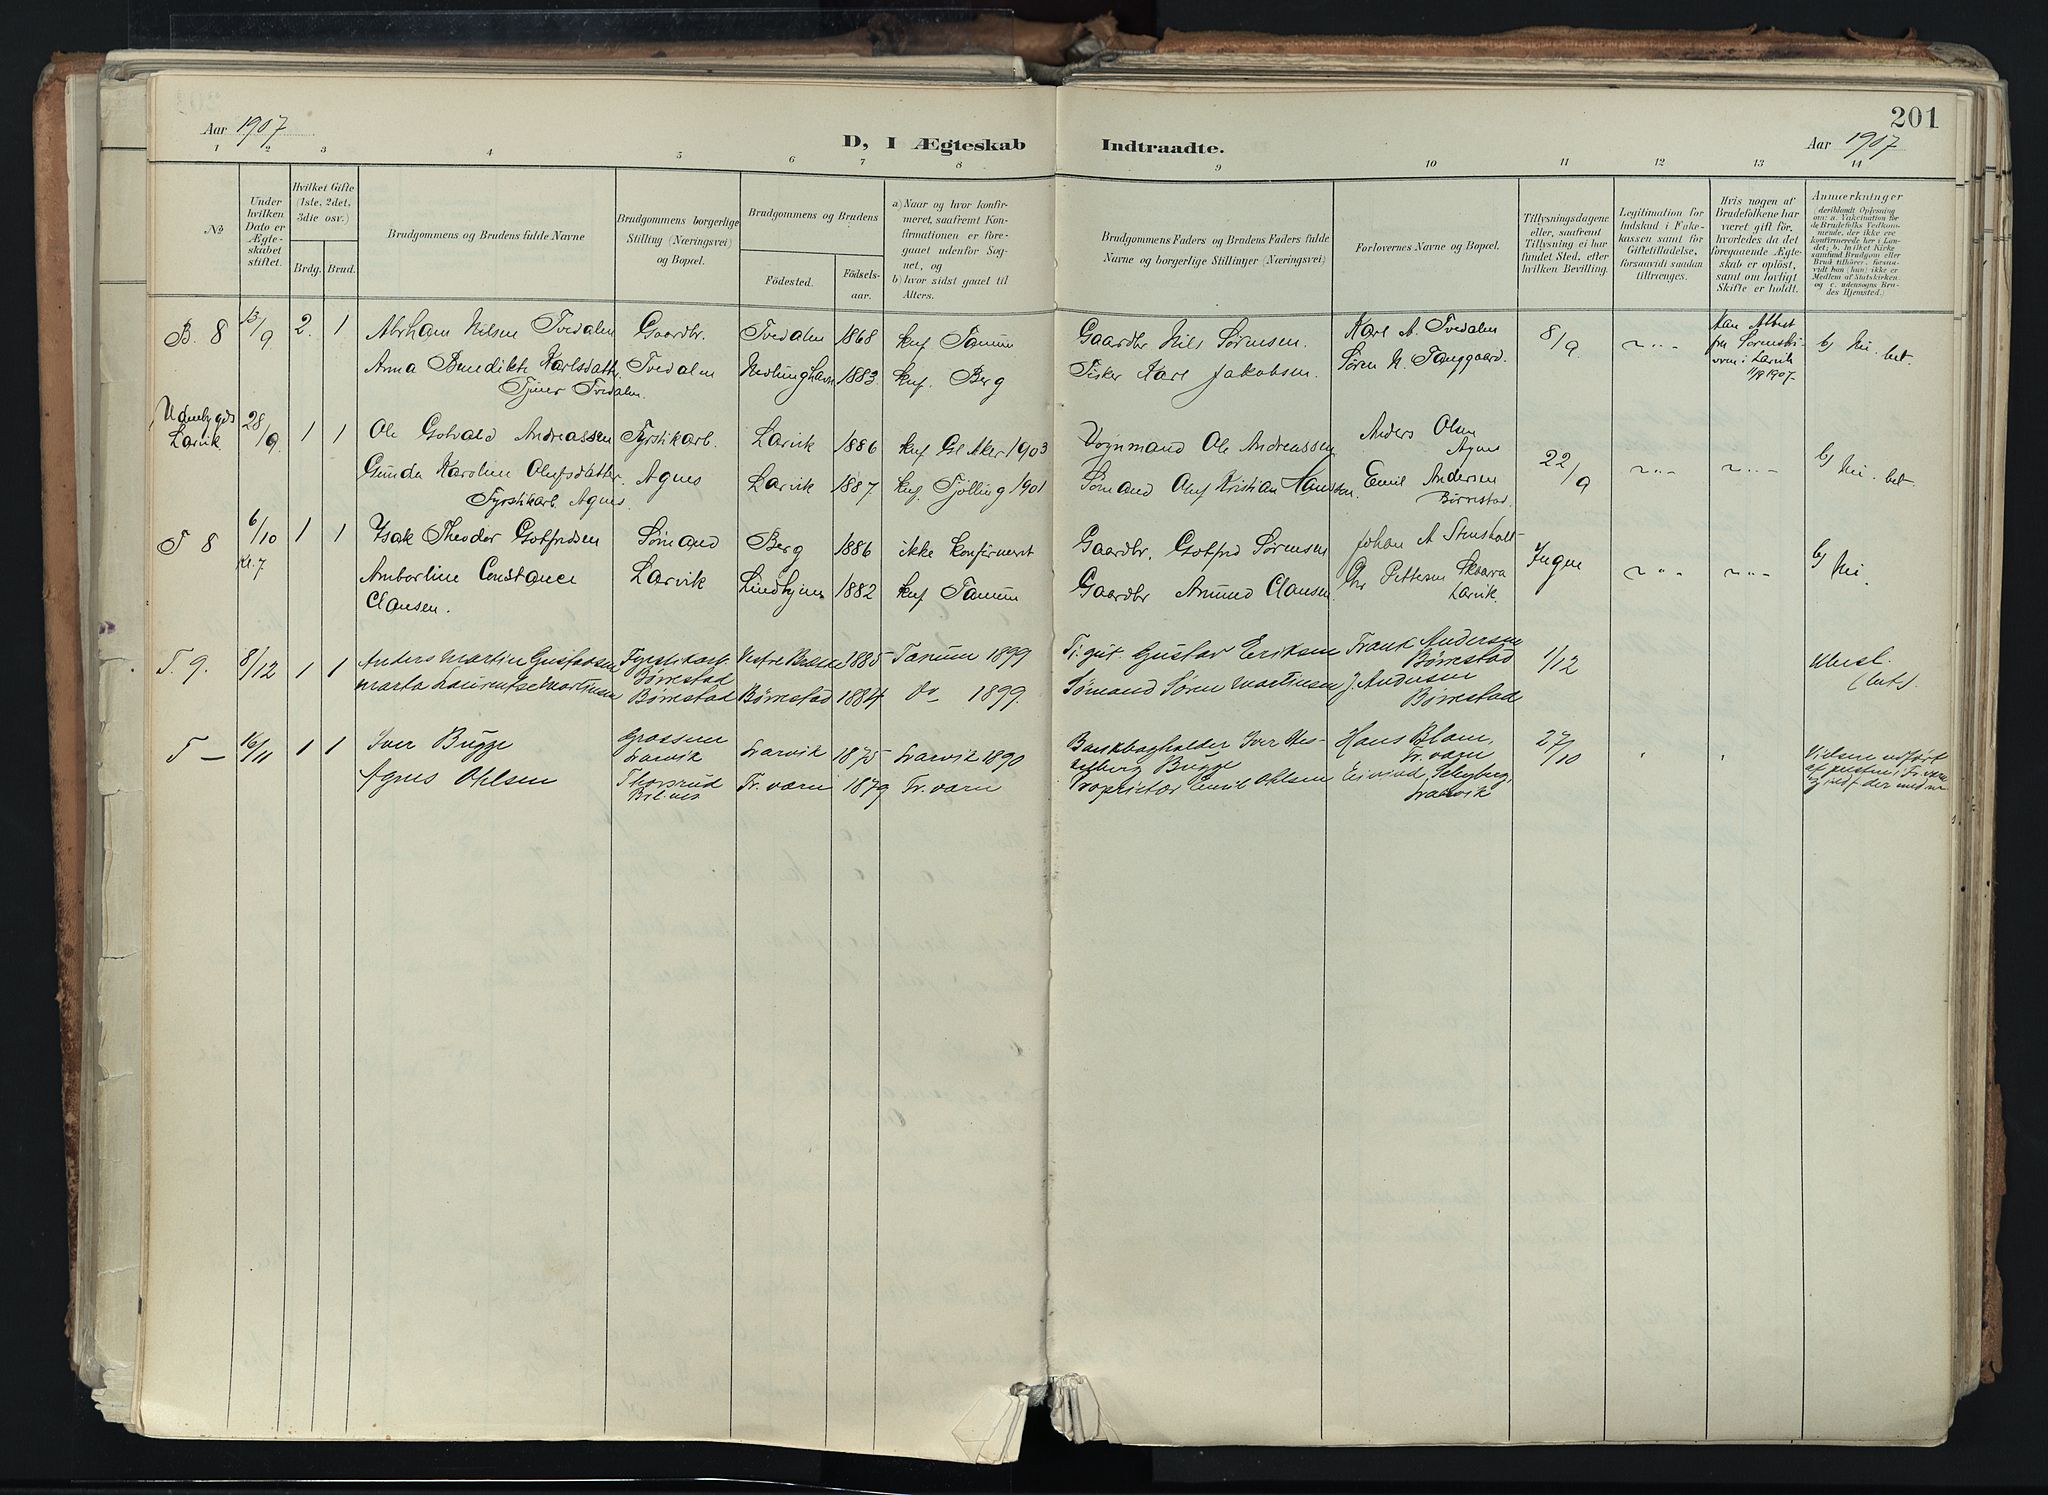 201
Aar 1907
D, I Ægteskab Indtraadte.
Aar 1907
1 2 3 4 5 6 7 8 9 10 11 12 13 14
No
Under hvilken Dato er Ægteskabet stiftet.
Hvilket Gifte (1ste, 2det, 3die osv.)
Brdg. Brud.
Brudgommens og Brudens fulde Navne
Brudgommens borgerlige Stilling (Næringsvei) og Bopæl.
Brudgommens og Brudens
Fødested.
Fødselsaar.
a) Naar og hvor konfirmeret, saafremt Konfirmationen er foregaaet udenfor Sognet, og
b) hvor sidst gaaet til Alters.
Brudgommens Faders og Brudens Faders fulde Navne og borgerlige Stillinger (Næringsvei)
Forlovernes Navne og Bopæl.
Tillysningsdagene eller, saafremt Tillysning ei har fundet Sted, efter hvilken Bevilling.
Legitimation for Indskud i Fakekassen samt for Giftetilladelse, forsaavidt saadan tiltrænges.
Hvis nogen af Brudefolkene har været gift før, hvorledes da det foregaaende Ægteskab er opløst, samt om lovligt Skifte er holdt.
Anmærkninger
(deriblandt Oplysning om: a. Vakcination for de Brudefolks Vedkommende, der ikke ere konfirmerede her i Landet; b. hvilket Kirkesamfund Brudgom eller Brud tilhører, forsaavidt han (hun) ikke er Medlem af Statskirken, og c. udensogns Brudes Hjemsted.)
B. 8 13/9 2. 1 Abrham Nilsen Tvedalen Gaardbr. Tvedalen 1868 knf Tanum Gaardbr Nils Sørensen. Karl A. Tvedalen 8/9 " Kan Attest fra Sorenskriveren i Larvik 1907. b) Nei. bet.
Anna Benedikte Karlsdatter Tvedalen Nevlunghavn 1883. knf. Berg Fisker Karl Jakobsen. Søren N. Tanggaard.
Tjener Tvedalen.
Udenbygds Larvik 28/9 1 1 Ole Gotvald Andreassen Fyrstikarb. Larvik 1886 knf Gl Aker 1903 Vognmand Ole Andreassen Anders Olsen Agnes 22/9 " " b) Nei. bet
Gunda Karoline Olufsdatter Agnes Larvik 1887. knf. Tjølling 1901 Sømand Oluf Kristian Hansen. Emil Andersen Børrestad.
Fyrstikarb. Agnes
T 8 6/10 Kl. 7 1 1 Isak Theodor Gotfredsen Sømand Berg 1886 ikke konfirmeret Gaardbr. Gotfred Sørensen Johan A Stensholt Ingen " " b) Nei.
Amborline Constance Larvik Lindhjem 1882 knf Tanum Gaardbr Amund Clausen. Chr Pettersen Skaara Larvik.
Clausen.
T. 9. 8/12 1 1 Anders Martin Gustavsen Fyrstikarb. Børrestad 1885 Tanum 1899 Gustav Eriksen Frank Andersen Børrestad 1/12 (bet).
Marta Laurentse Martinsen Børrestad Børrestad 1884 Do 1899. Sømand Søren Martinsen J. Andersen Børrestad
T — 16/11 1 1 Iver Bugge Grosserer Larvik Larvik 1875 Larvik 1890 Bankbogholder Iver Bugge Hans Blom, Fr.værn 27/10 " " Vielsen udført af presten i Fr.værn og indf. der med nr
Agnes Ohlsen Thorsrud Br.l.nes Fr. værn 1879 Fr. værn Proprietær Emil Ohlsen Eivind Larvik